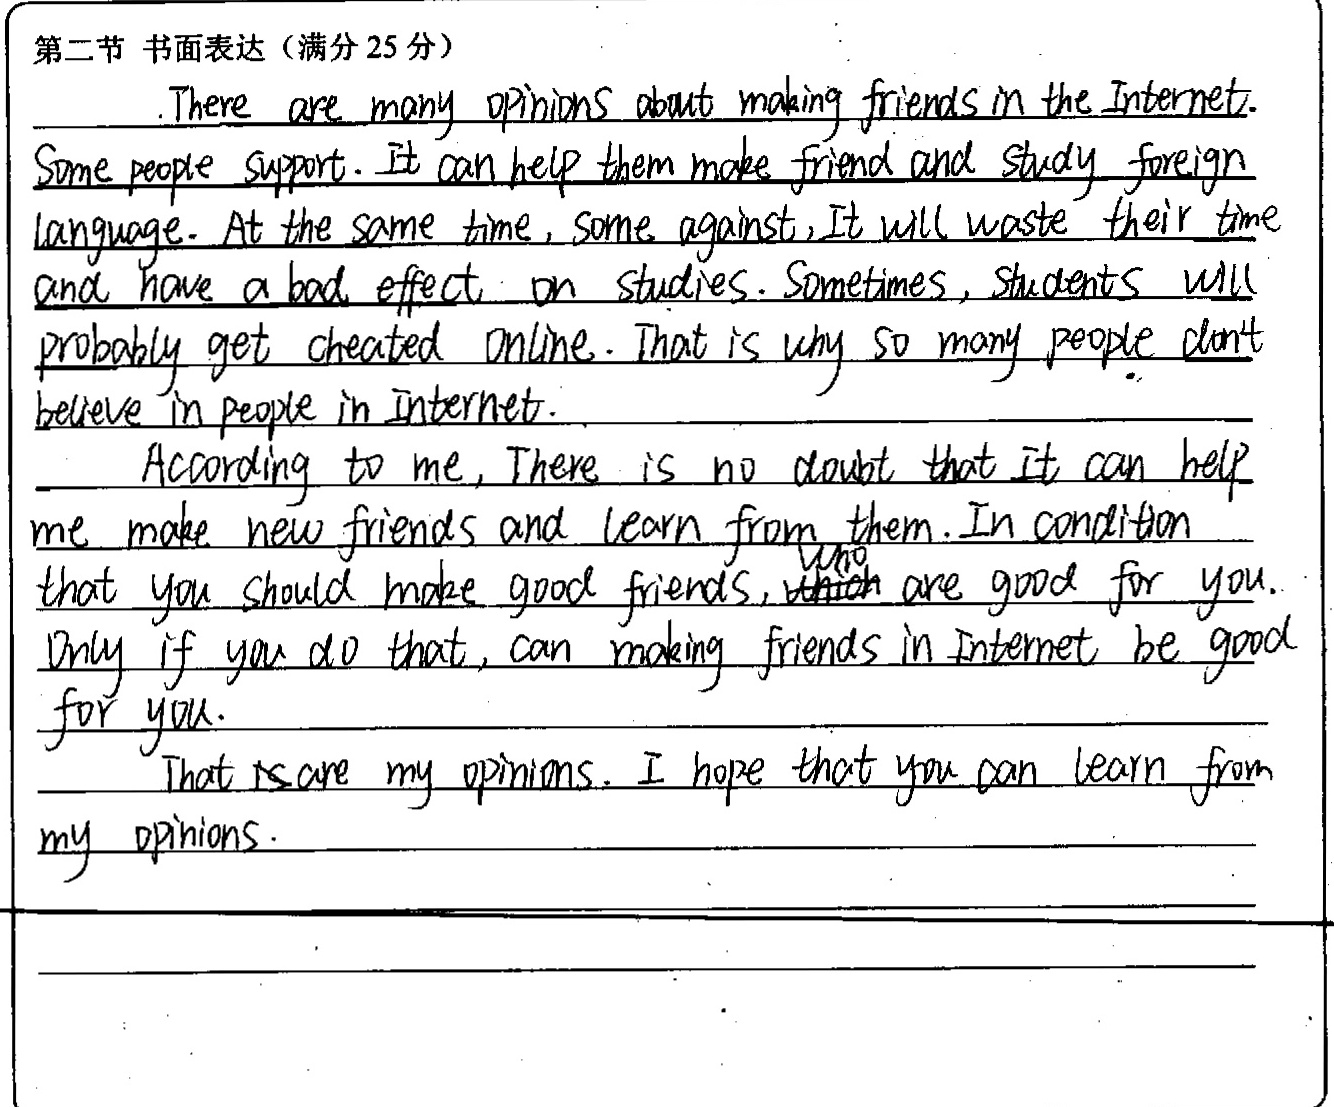 第二节 书面表达（满分 25 分）
There are many opinions about making friends in the Internet.
Some people support. It can help them make friend and study foreign
language. At the same time, some against, It will waste their time
and have a bad effect on studies. Sometimes, students will
probably get cheated online. That is why so many people don't
believe in people in Internet.
According to me, There is no doubt that It can help
me make new friends and learn from them. In condition
that you should make good friends, who are good for you.
Only if you do that, can making friends in Internet be good
for you.
That are my opinions. I hope that you can learn from
my opinions.